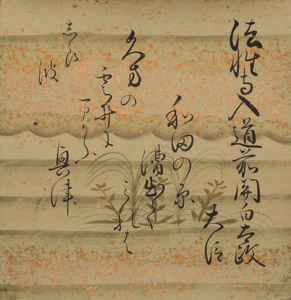 法性寺入道前関白太政
大臣
和田の原
漕出て
みれは
久方の
雲井に
まかふ
奥津
志ら
波